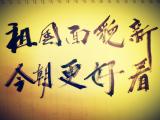 祖国面貌新
今朝更好看